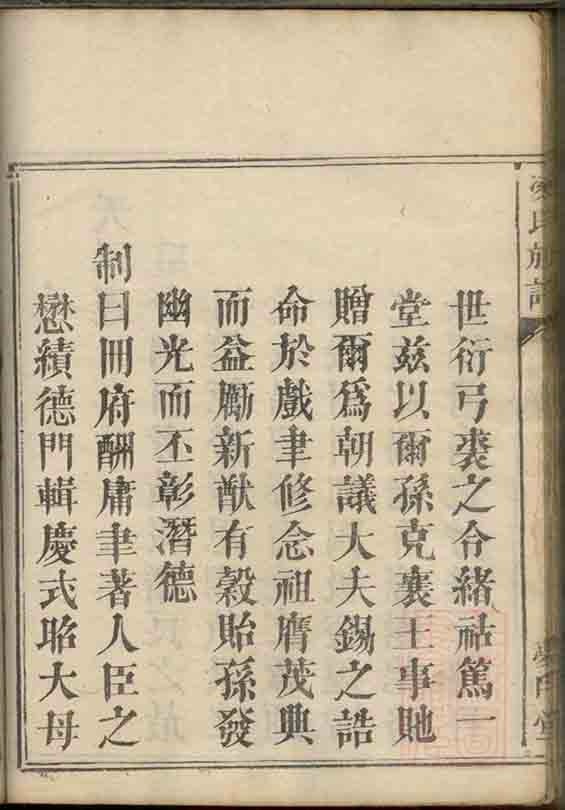 氏族譜
世衍弓裘之令緒祜篤一
堂茲以爾孫克襄王事貤
贈爾爲朝議大夫錫之誥
命於戲聿修念祖膺茂典
而益勵新猷有穀貽孫發
幽光而丕彰潛德
制曰冊府酬庸聿著人臣之
懋績德門輯慶式昭大母